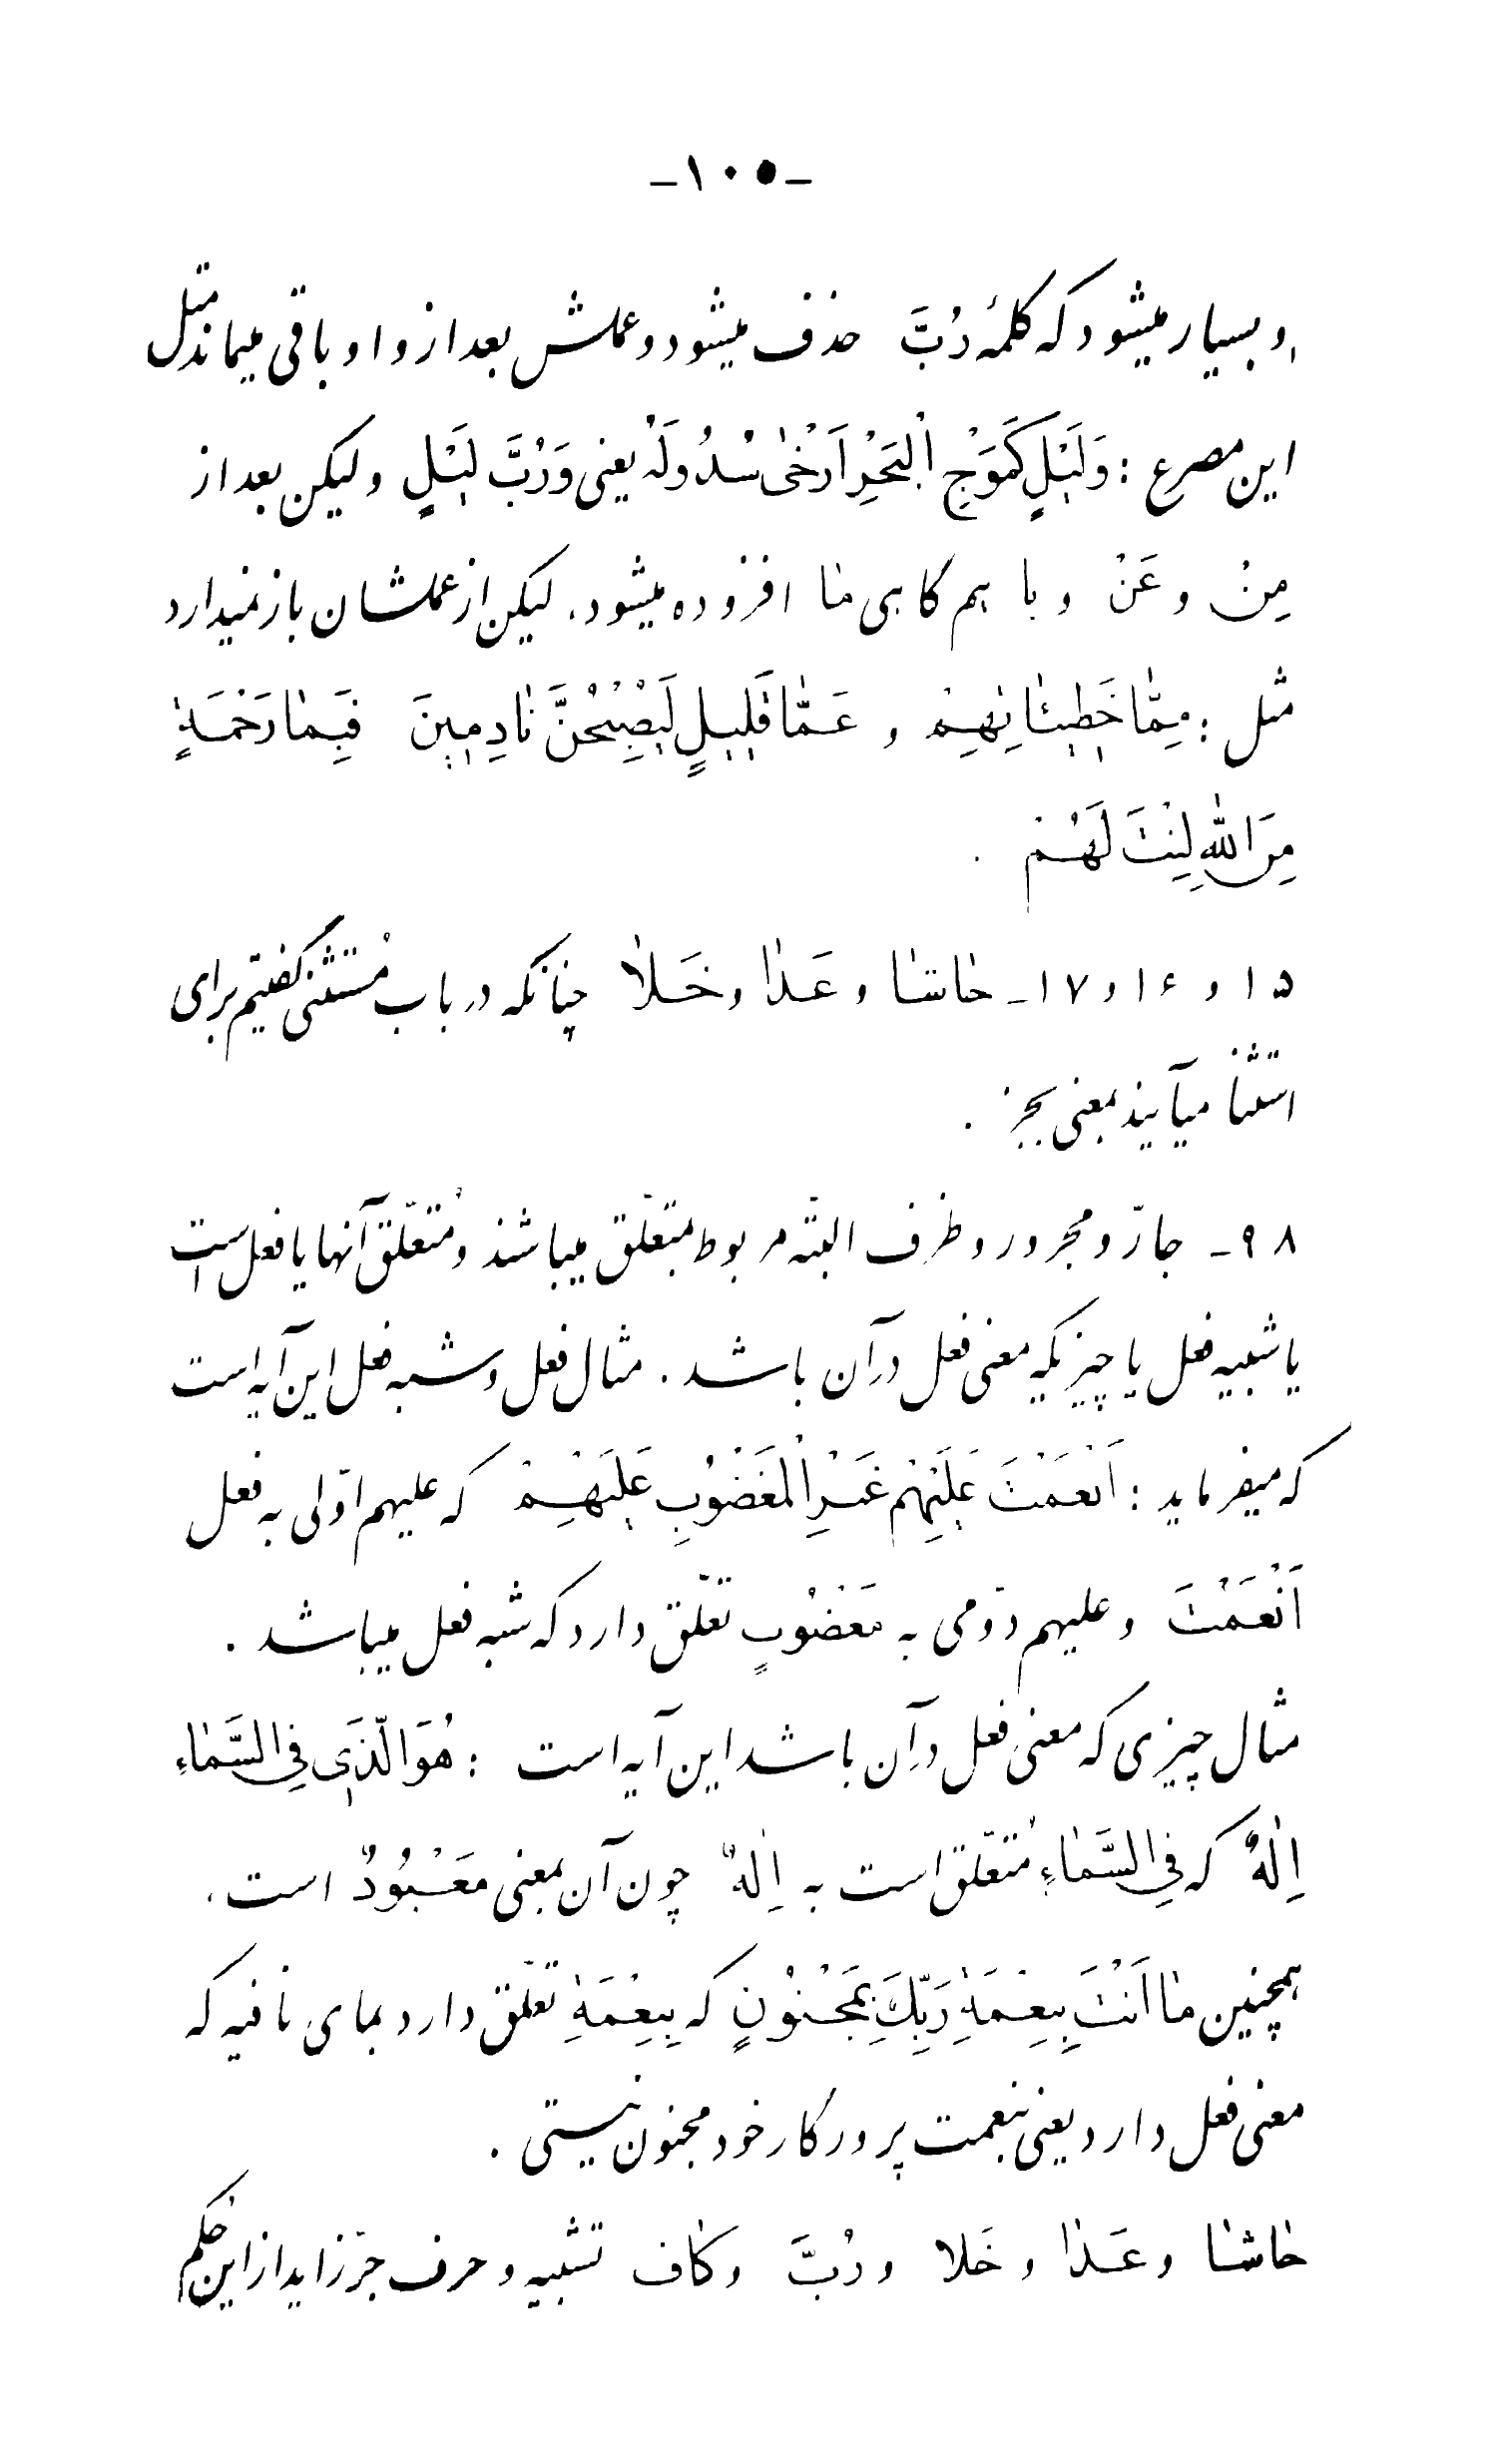 -۱۰۵-
و بسیار میشود که کلمهٔ رُبَّ حذف میشود و عملش بعد از واو باقی میماند مثل
این مصرع : وَلَیْلٍ کَمَوْجِ الْبَحْرِ اَرْخیٰ سُدُولَهُ یعنی وَرُبَّ لَیْلٍ ولیکن بعد از
مِنْ و عَنْ و با هم گاهی مٰا افزوده میشود. لیکن از عملشان باز نمیدارد
مثل : مِمّٰا خَطیٖئٰاتِهِمْ و عَمّٰا قَلیٖلٍ لَیُصْبِحُنَّ نٰادِمیٖنَ فَبِمٰا رَحْمَةٍ
مِنَ اللّٰهِ لِنْتَ لَهُمْ .
۱۵ و ۱۶ و ۱۷- حٰاشٰا و عَدٰا و خَلاٰ چنانکه در باب مُستثنی گفتیم برای
استثنا میآیند بمعنی بجز .
۹۸- جارّ و مجرور و ظرف البته مربوط بمتعلّق میباشند و مُتعلّق آنها یا فعل است
یا شبیه فعل یا چیزیکه معنی فعل در آن باشد . مثال فعل و شبه فعل این آیه است
که میفرماید : اَنْعَمْتَ عَلَیْهِمْ غَیْرِ الْمَغْضُوبِ عَلَیْهِمْ که علیهم اوّلی به فعل
اَنْعَمْتَ و علیهم دوّمی به مَغْضُوبٍ تعلّق دارد که شبه فعل میباشد .
مثال چیزی که معنی فعل در آن باشد این آیه است : هُوَ الَّذیٖ فِی السَّمٰاءِ
اِلٰهٌ که فِی السَّمٰاءِ مُتعلّق است به اِلٰهٌ چون آن بمعنی مَعْبُودٌ است .
همچنین مٰا اَنْتَ بِنِعْمَةِ رَبِّكَ بِمَجْنُونٍ که بِنِعْمَةِ تعلّق دارد بمای نافیه که
معنی فعل دارد یعنی بنعمت پروردگار خود مجنون نیستی .
حٰاشٰا و عَدٰا و خَلا و رُبَّ و کٰاف تشبیه و حرف جرّ زاید از این حکم